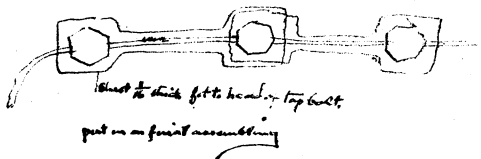 Sheet 1/16 thick fit to head of Tap bolt.
put on on final assembling